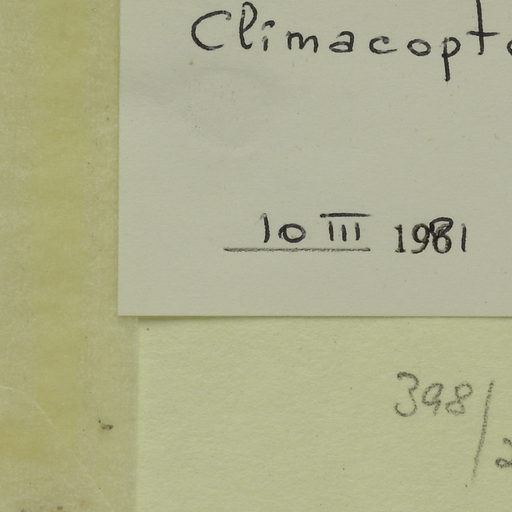 Climacopt
10 III 1981
398/2